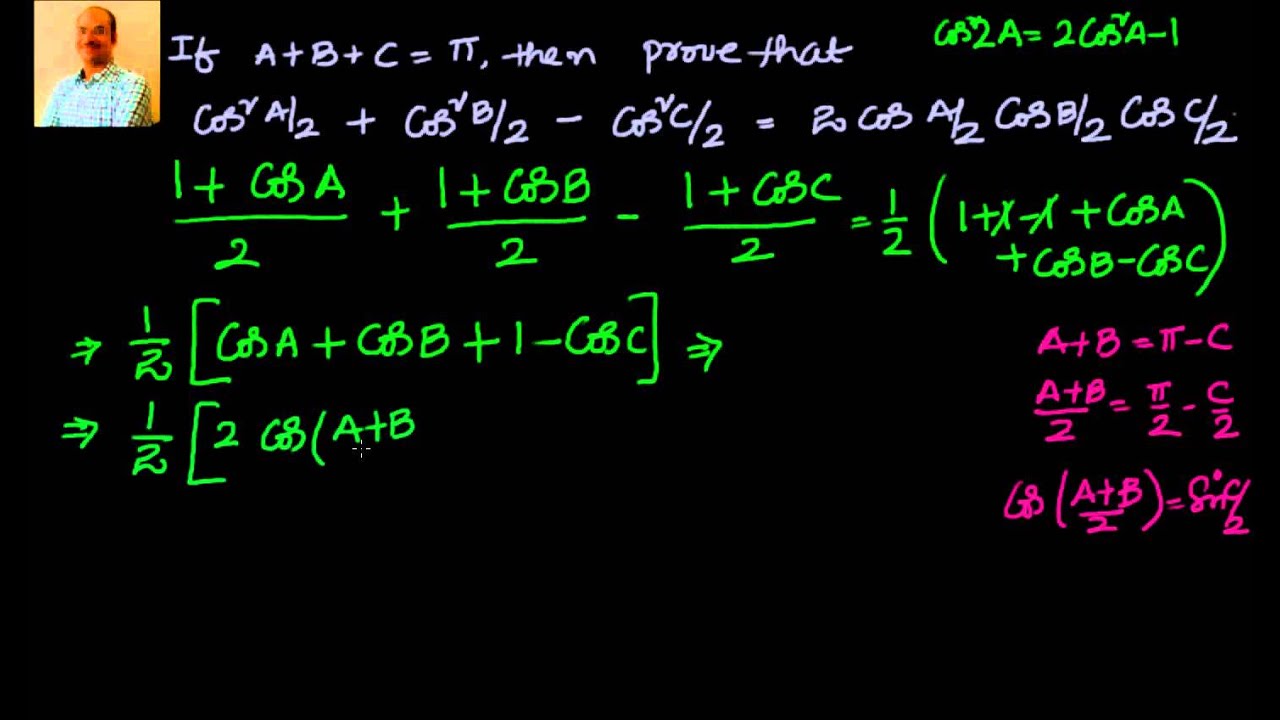 If A+B+C = π, then prove that
Cos²A/2 + Cos²B/2 - Cos²C/2 = 2 Cos A/2 Cos B/2 Cos C/2
Cos2A = 2Cos²A-1
(1 + Cos A)/2 + (1 + Cos B)/2 - (1 + Cos C)/2 = 1/2 (1+1-1 + Cos A
+ Cos B - Cos C)
⇒ 1/2 [Cos A + Cos B + 1 - Cos C] ⇒
⇒ 1/2 [2 Cos (A+B
A+B = π-C
(A+B)/2 = π/2 - C/2
Cos ((A+B)/2) = Sin C/2